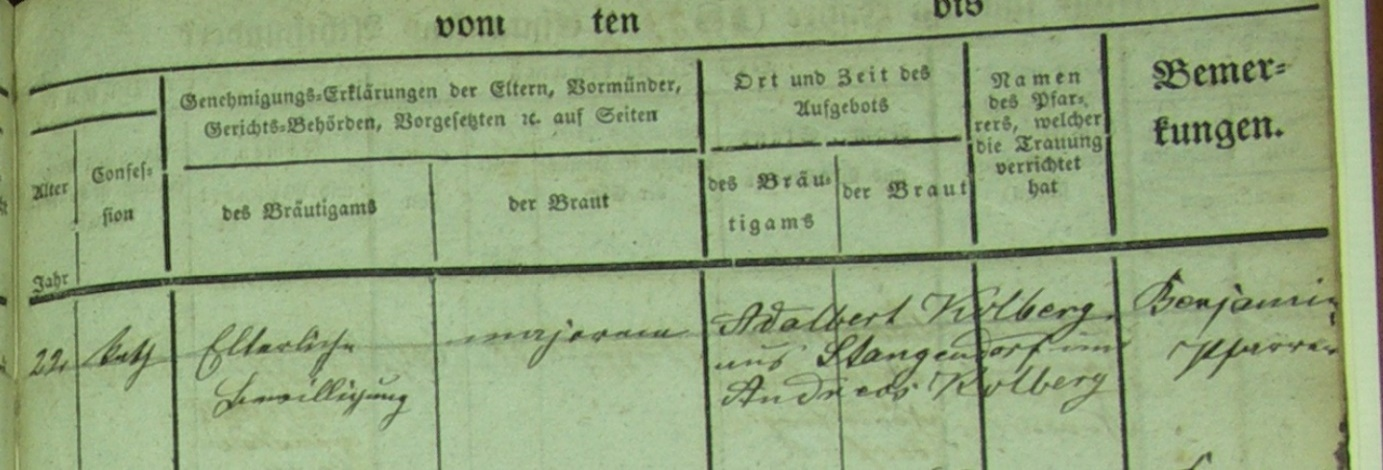 vom ten bis
Alter
Jahr
Confes⸗
sion
Genehmigungs⸗Erklärungen der Eltern, Vormünder,
Gerichts⸗Behörden, Vorgesetzten ꝛc. auf Seiten
des Bräutigams
der Braut
Ort und Zeit des
Aufgebots
des Bräu⸗
tigams
der Braut
Namen
des Pfar⸗
rers, welcher
die Trauung
verrichtet
hat
Bemer⸗
kungen.
22 kath Elterliche majorenn Adalbert Kolberg
Bewilligung
aus Stangendorf und
Andreas Kolberg
Benjamin
Pfarrer